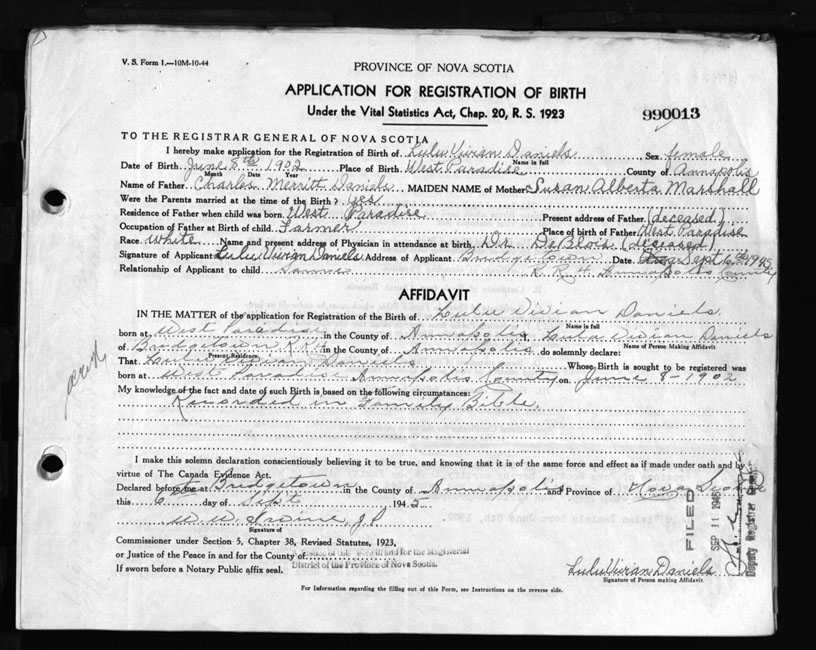 V. S. Form 1.—10M-10-44
PROVINCE OF NOVA SCOTIA
APPLICATION FOR REGISTRATION OF BIRTH
Under the Vital Statistics Act, Chap. 20, R. S. 1923
990013
TO THE REGISTRAR GENERAL OF NOVA SCOTIA
I hereby make application for the Registration of Birth of Lulu Vivian Daniels, Sex female
Name in full
Date of Birth June 8th 1902 Place of Birth West Paradise County of Annapolis
Month Date Year
Name of Father Charles Merritt Daniels MAIDEN NAME of Mother Susan Alberta Marshall
Were the Parents married at the time of the Birth? yes
Residence of Father when child was born West Paradise Present address of Father (deceased)
Occupation of Father at Birth of child Farmer Place of birth of Father West Paradise
Race white Name and present address of Physician in attendance at birth Dr DeBlois (deceased)
Signature of Applicant Lulu Vivian Daniels Address of Applicant Bridgetown Date Sept 6th 1945
Relationship of Applicant to child R.R. #4 Annapolis County
AFFIDAVIT
IN THE MATTER of the application for Registration of the Birth of Lulu Vivian Daniels
Name in full
born at West Paradise in the County of Annapolis, I, Lulu Vivian Daniels
Name of Person Making Affidavit
of Bridgetown R.R.4 in the County of Annapolis do solemnly declare:
Present Residence
That Lulu Vivian Daniels Whose Birth is sought to be registered was
born at West Paradise Annapolis County on June 8-1902
My knowledge of the fact and date of such Birth is based on the following circumstances:
Recorded in Family Bible.
I make this solemn declaration conscientiously believing it to be true, and knowing that it is of the same force and effect as if made under oath and by
virtue of The Canada Evidence Act.
Declared before me at Bridgetown in the County of Annapolis and Province of Nova Scotia
this 6th day of Sept 1945
W W Irvine J.P.
Signature of
Commissioner under Section 5, Chapter 38, Revised Statutes, 1923,
or Justice of the Peace in and for the County of
Justice of the Peace in and for the Magisterial
District of the Province of Nova Scotia.
If sworn before a Notary Public affix seal.
Lulu Vivian Daniels
Signature of Person making Affidavit
For Information regarding the filling out of this Form, see Instructions on the reverse side.
FILED
SEP 11 1945
Deputy Registrar General